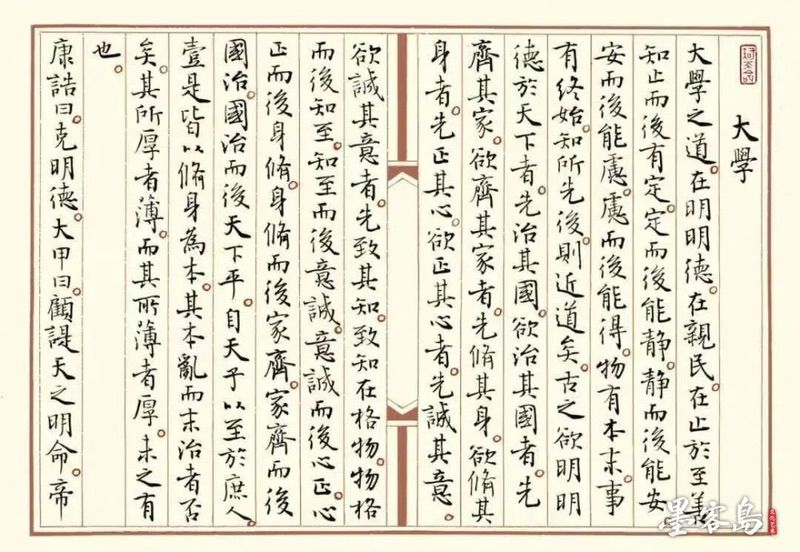 大學
大學之道。在明明德。在親民。在止於至善
知止而後有定。定而後能靜。靜而後能安
安而後能慮。慮而後能得。物有本末。事
有終始。知所先後。則近道矣。古之欲明明
德於天下者。先治其國。欲治其國者。先
齊其家。欲齊其家者。先脩其身。欲脩其
身者。先正其心。欲正其心者。先誠其意。
欲誠其意者。先致其知。致知在格物。物格
而後知至。知至而後意誠。意誠而後心正。心
正而後身脩。身脩而後家齊。家齊而後
國治。國治而後天下平。自天子以至於庶人。
壹是皆以脩身為本。其本亂而末治者否
矣。其所厚者薄。而其所薄者厚。未之有
也。
康誥曰。克明德。大甲曰。顧諟天之明命。帝
墨客島